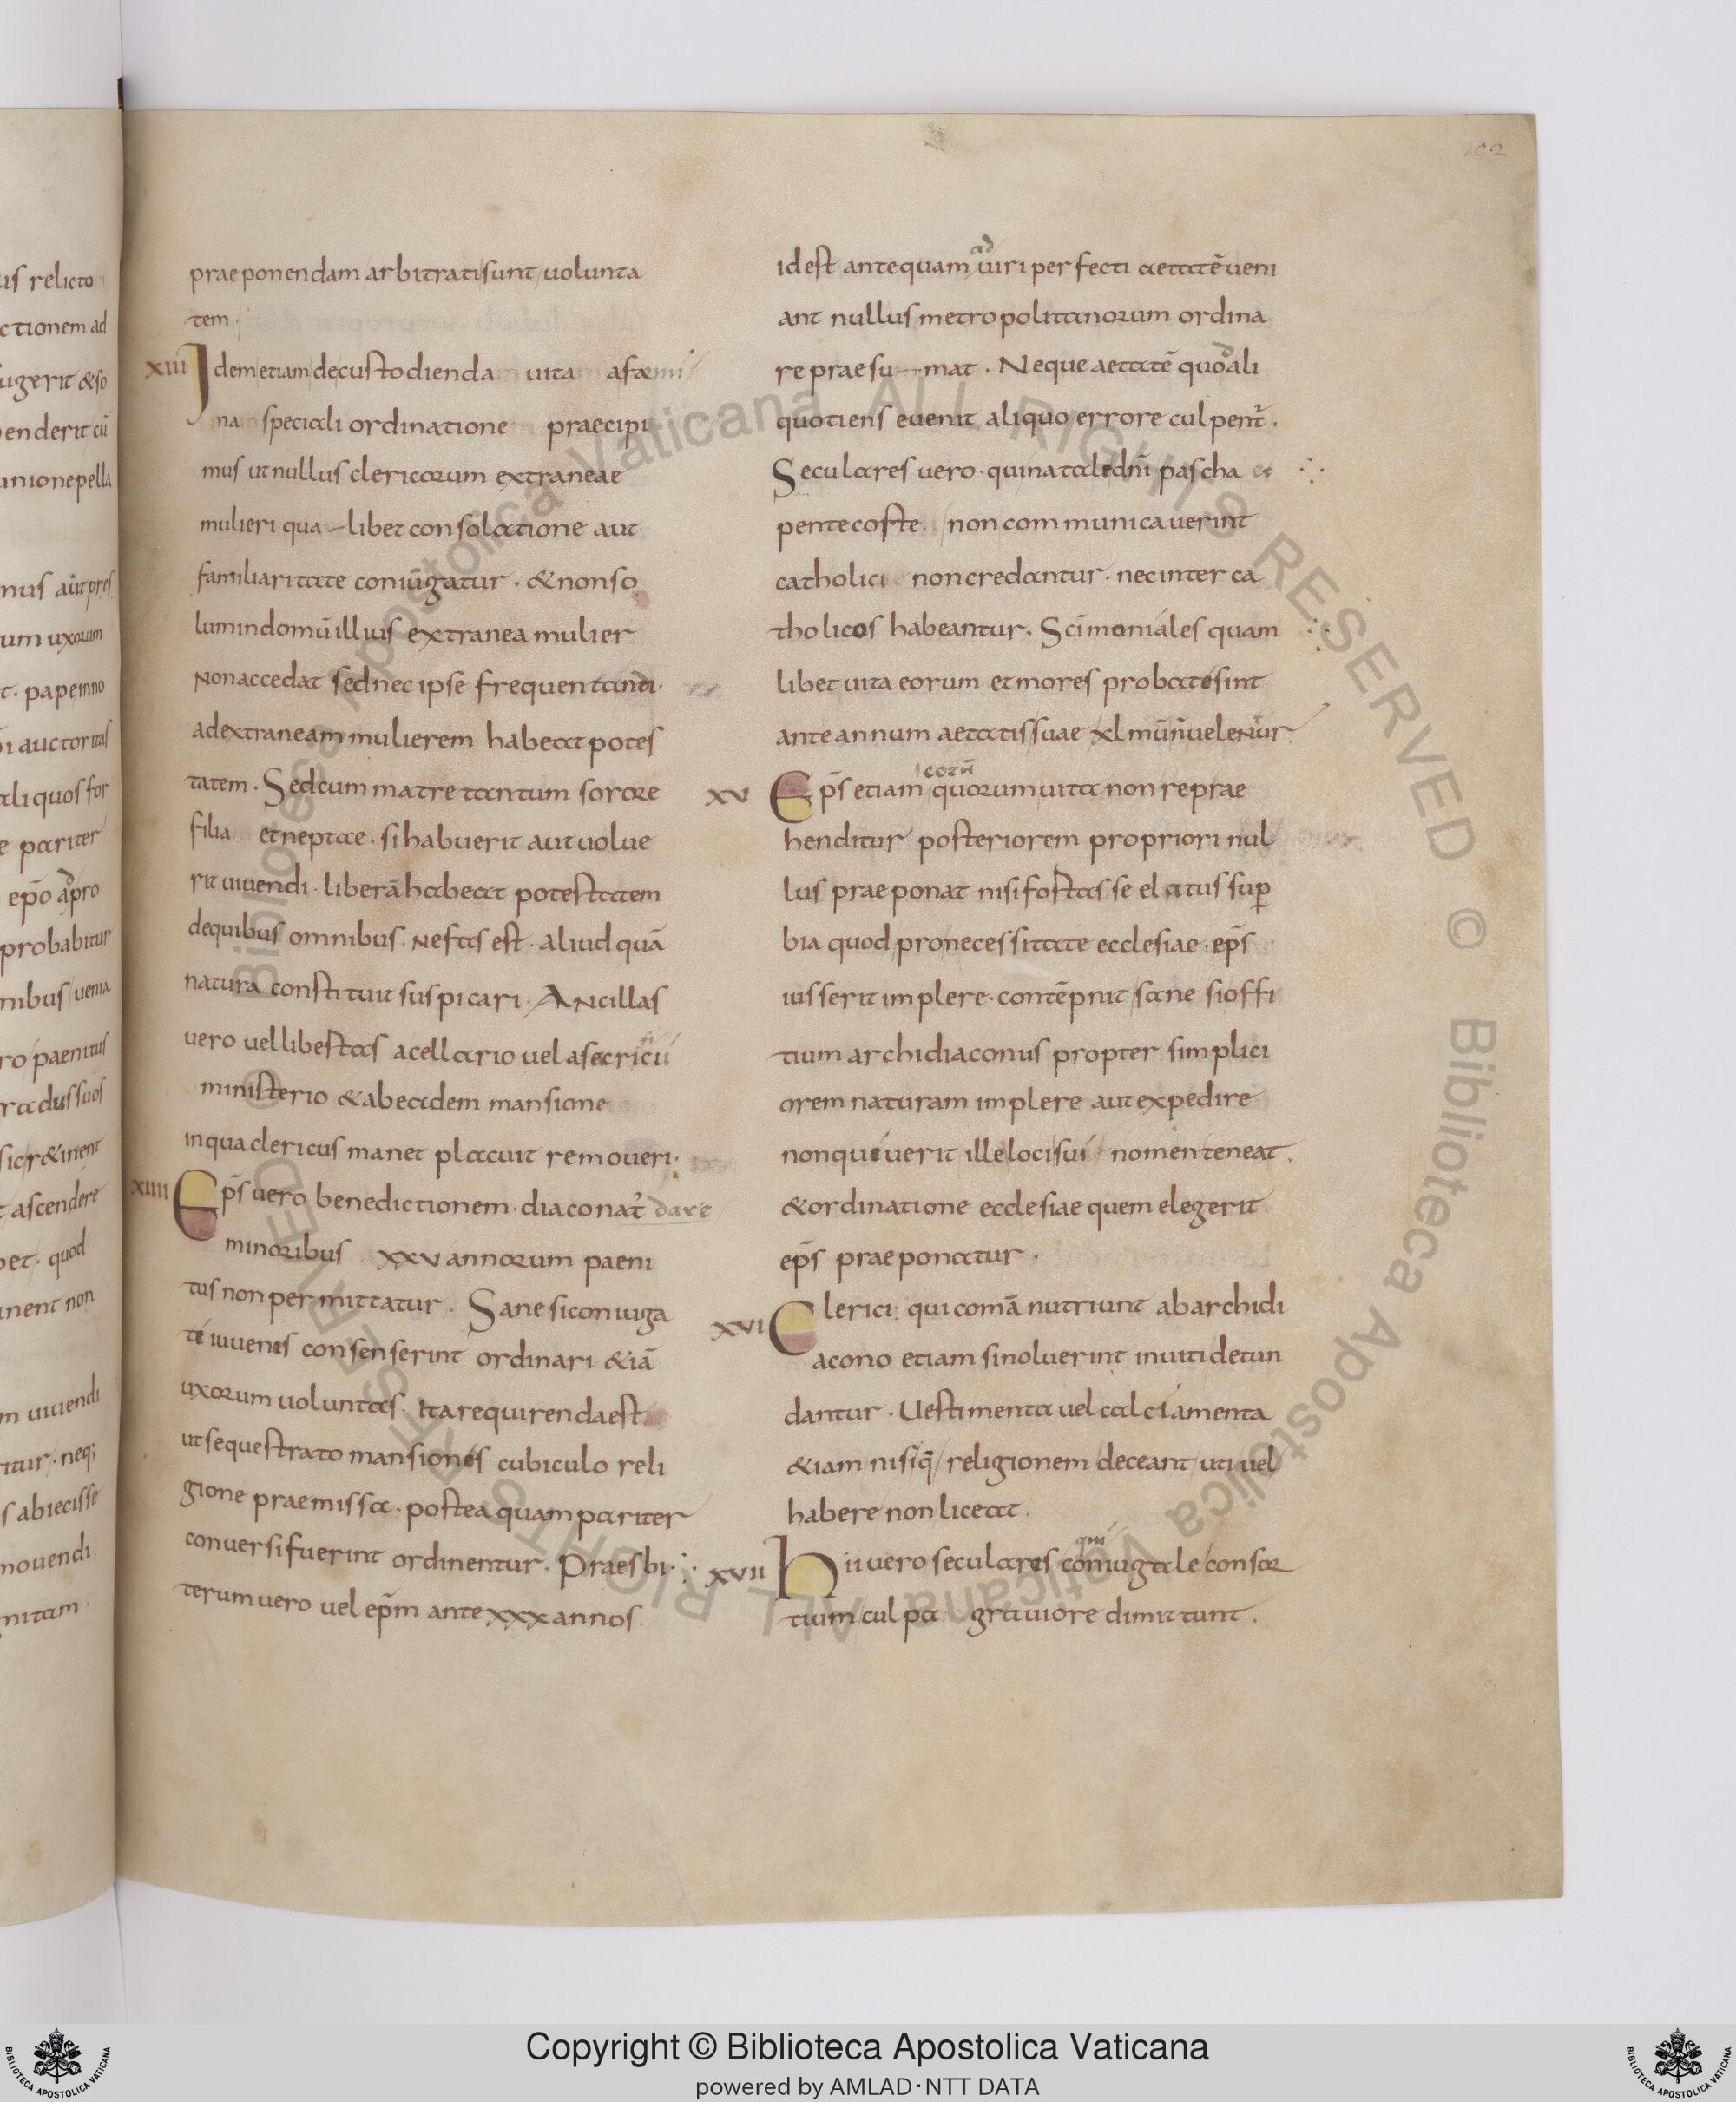 102
us relicto
ctionem ad
ugerit &so
enderit cū
unionepella
nus aut pres
um uxorum
t. pape inno
i auctoritas
ali quos for
e pariter
ep̄o apro
probabitur
nibus uenia
ro paenitus
radus suos
t ascendere
et. quod
inent non
m uiuendi
itur. neq;
s abiecisse
mouendi.
nitam.
praeponendam arbitrati sunt uolunta
tem.
XIII Idem etiam decustodienda uita afaemi
na speciali ordinatione praecipi
mus ut nullus clericorum extraneae
mulieri qua–libet consolatione aut
familiaritate coniūgatur. & non so
lum indomū illius extranea mulier
Non accedat sed nec ipse frequentandi.
ad extraneam mulierem habeat potes
tatem. Sed cum matre tantum sorore
filia et neptae. si habuerit aut uolue
rit uiuendi. liberā habeat potestatem
de quibus omnibus. Nefas est. aliud quā
natura constituit suspicari. Ancillas
uero uel libestas acellario uel a
ministerio & ab eadem mansione
in qua clericus manet placuit remoueri.
XIIII Ep̄s uero benedictionem. diaconat᷒ dare
minoribus XXV annorum paeni
tus non permittatur. Sane si coniuga
te iuuenes consenserint ordinari &iā
uxorum uoluntas. Ita requirenda est
ut sequestrato mansiones cubiculo reli
gione praemissa. postea quam pariter
conuersi fuerint ordinentur. Praesbi.
terum uero uel ep̄m ante xxx annos
ad
id est antequam uiri perfecti aetatē ueni
ant nullus metropolitanorum ordina
re praesu–mat. Neque aetatē quod ali
quotiens euenit aliquo errore culpent᷒.
Seculares uero. qui natale dn̄i pascha et
pentecoste. non communicauerint
catholici non credantur. nec inter ca
tholicos habeantur. Sc̄imoniales quam
libet uita eorum et mores probatesint
ante annum aetatis suae xl
eorū
XV Ep̄s etiam quorum uita non reprae
henditur posteriorem propriori nul
lus praeponat nisi fostasse elatus sup̱
bia quod pro necessitate ecclesiae. ep̄s
iusserit implere. contēpnit sane si offi
tium archidiaconus propter simplici
orem naturam implere aut expedire
non quiuerit ille loci sui nomen teneat.
& ordinatione ecclesiae quem elegerit
ep̄s praeponatur.
XVI Clerici. qui comā nutriunt ab archidi
acono etiam si noluerint inuiti detun
dantur. Uestimenta uel calciamenta
&iam nisi q̄ religionem deceant uti uel
habere non liceat.
qui
XVII Hii uero seculares coniugale consor
tium culpa grauiore dimittunt.
© Biblioteca Apostolica Vaticana ALL RIGHTS RESERVED © Biblioteca Apostolica Vaticana ALL RIGHTS RESERVED
Copyright © Biblioteca Apostolica Vaticana
powered by AMLAD·NTT DATA
BIBLIOTECA APOSTOLICA VATICANA
BIBLIOTECA APOSTOLICA VATICANA